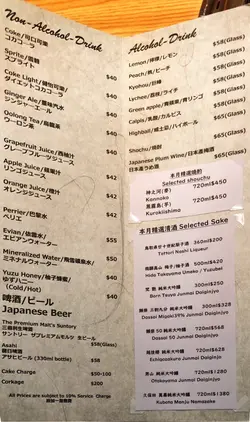 Non-Alcohol-Drink
Coke/可口可樂 $40
コカコーラ
Sprite/雪碧 $40
スプライト
Coke Light/健怡可樂 $40
ダイエットコカコーラ
Ginger Ale/薑味汽水 $40
ジンジャーエール
Oolong Tea/烏龍茶 $40
ウーロン茶
Grapefruit Juice/西柚汁 $40
グレープフルーツジュース
Apple Juice/蘋果汁 $40
リンゴジュース
Orange Juice/橙汁 $40
オレンジジュース
Perrier/巴黎水 $42
ペリエ
Evian/依雲水/ $55
エビアンウォーター
Mineralized Water/飛雪礦泉水/ $30
ミネラルウォーター
Yuzu Honey/柚子蜂蜜/ $40
ゆずハニー
(Cold/Hot)
啤酒/ビール
Japanese Beer
The Premium Malt's Suntory
三得利生啤酒
サントリー ザプレミアムモルツ 生ビール
Asahi $58(Glass)
朝日啤酒
アサヒビール (330ml bottle) $58
Cake Charge $50-100
Corkage $200
All Prices are subject to 10% Service Charge
Alcohol-Drink
Lemon/檸檬/レモン $58(Glass)
Peach/桃/ピーチ $58(Glass)
Kyohou/巨峰 $58(Glass)
Lychee/荔枝/ライチ $58(Glass)
Green apple/青蘋果/青リンゴ $58(Glass)
Calpis/乳酸/カルピス $58(Glass)
Highball/威士忌/ハイボール $65(Glass)
Shochu/燒酎 $58(Glass)
Japanese Plum Wine/日本産梅酒 $58(Glass)
日本産うめ酒
本月精選燒酎
Selected shouchu
神之河(麥) 720ml$450
Kannoko
黒霧島(芋) 720ml$400
Kurokiishima
本月精選清酒 Selected Sake
360ml$200
Tottori Nashi Liqueur
720ml$500
Hida Takayama Umeko / Yuzubei
純米大吟釀 300ml$280
Born Tsuya Junmai Daiginjyo
獺祭 三割九分 純米大吟釀 300ml$328
Dassai Migaki39% Junmai Daiginjyo
獺祭 50 純米大吟釀 720ml$500
Dassai 50 Junmai Daiginjyo
純米大吟釀 720ml$630
Echigozakura Junmai Daiginjyo
純米大吟釀 720ml$680
Otokoyama Junmai Daiginjyo
久保田 萬壽純米大吟釀 720ml$1380
Kubota Manju Namazake